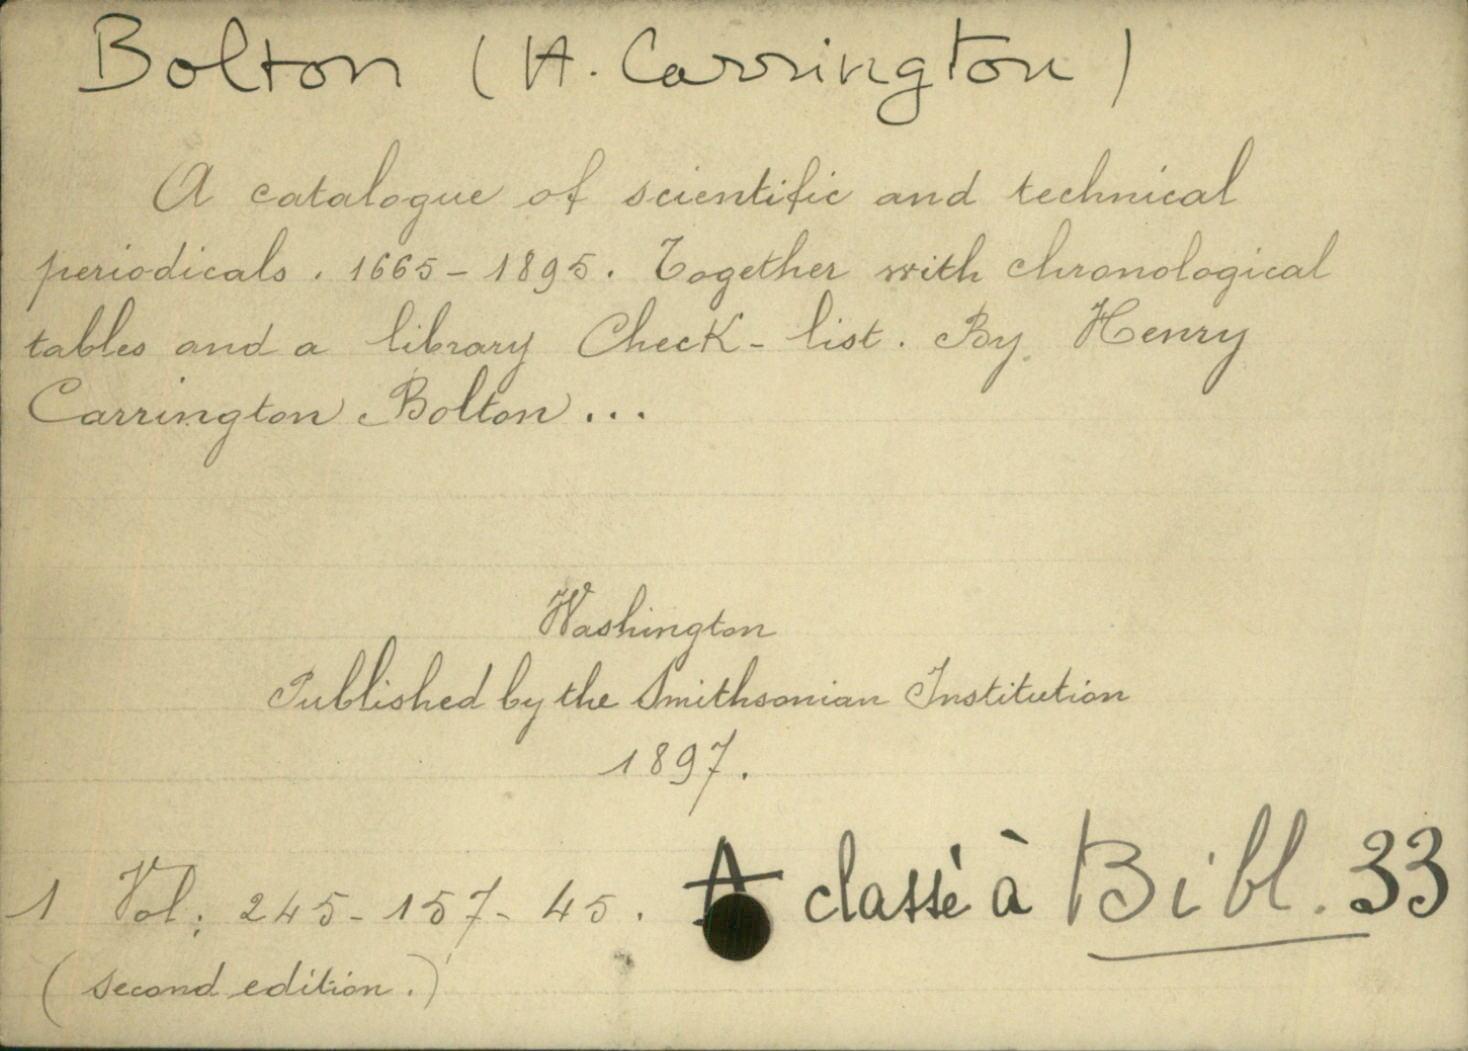 Bolton (H. Carrington)
A catalogue of scientific and technical
periodicals. 1665-1895. Together with chronological
tables and a library Check-list. By Henry
Carrington Bolton...
Washington
Published by the Smithsonian Institution
1897.
1 Vol; 245-157-45. A classé à Bibl. 33
(second edition.)